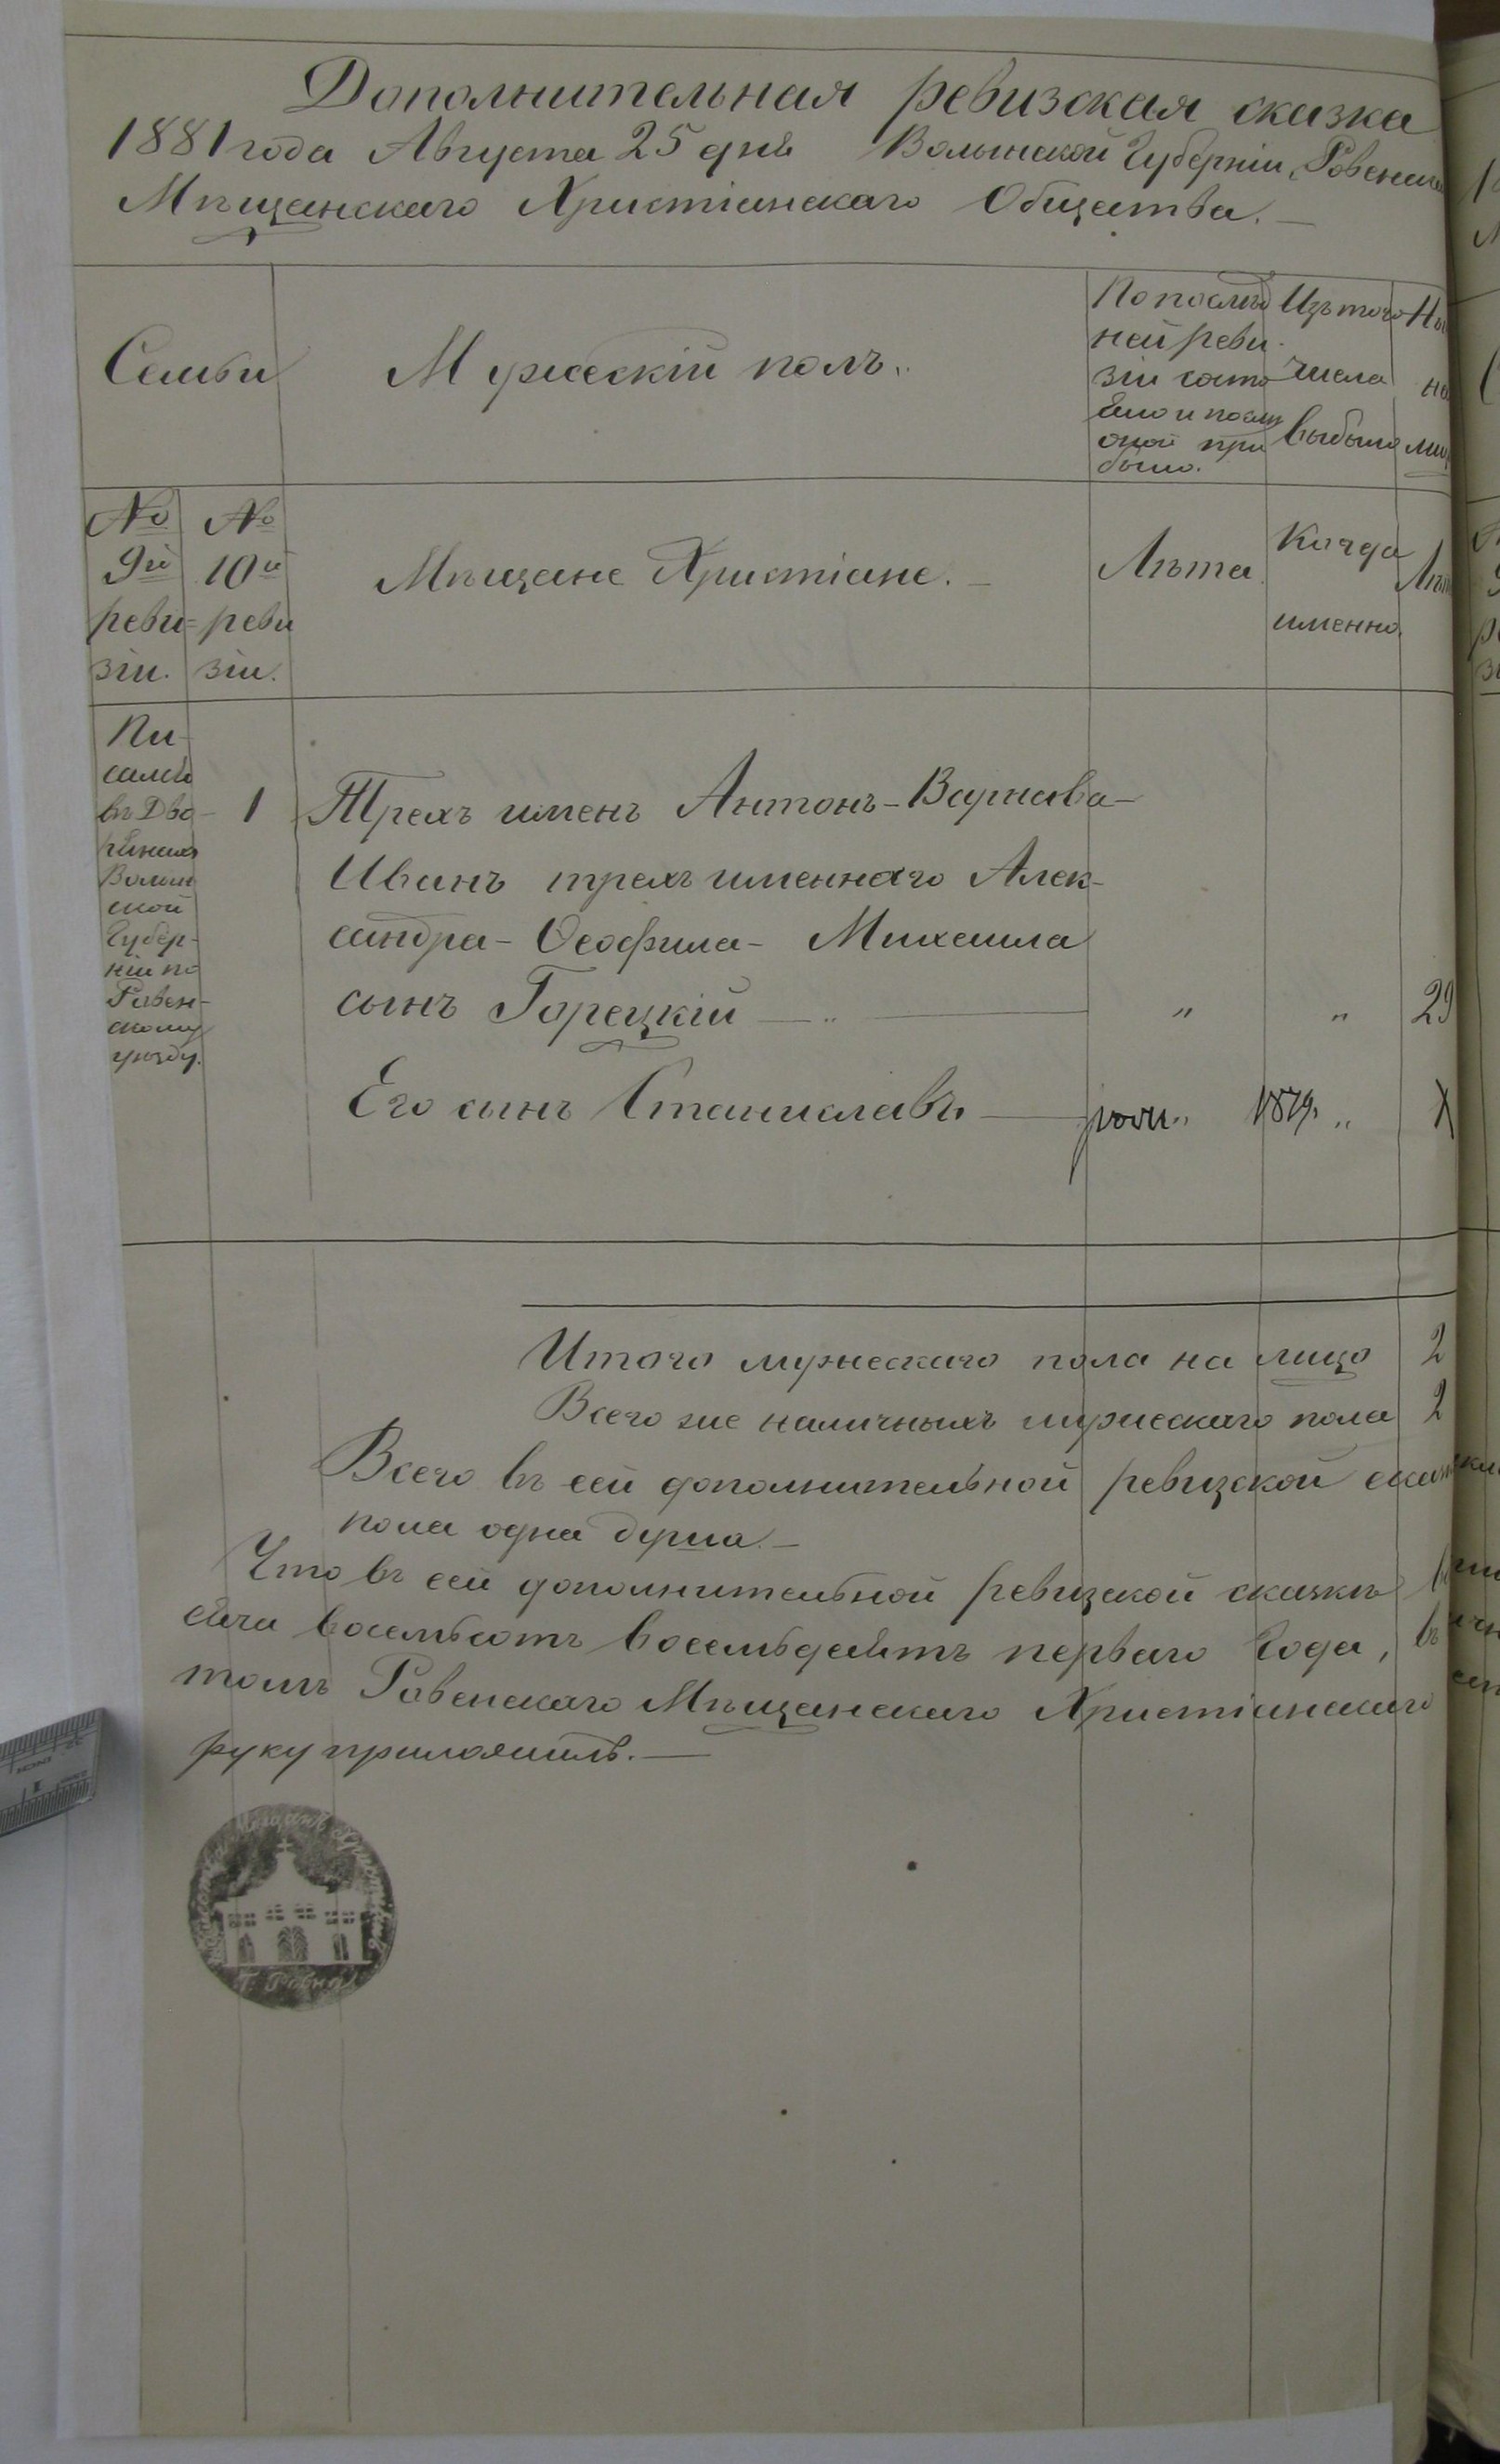 Дополнительная ревизская сказка
1881 года Августа 25 дня Волынской Губерніи, Ровенска
Мѣщанскаго Христіанскаго Общества.
Семьи
Мужескій полъ.
По послѣд
ней реви
зіи состо
яло и послѣ
оной при
было.
Изъ того
числа
выбыло
Ны
на
лиц
№
9й
реви=
зіи.
№
10й
реви
зіи.
Мѣщане Христіане.
Лѣта
Когда
именно.
Лѣт
Пи
сался
въ Дво-
рянахъ
Волын
ской
Губер-
ніи по
Ровен-
скому
уѣзду.
1
Трехъ именъ Антонъ-Варнава-
Иванъ трехъ именнаго Алек-
сандра-Ѳеофила-Михаила
сынъ Горецкій " " 29
Его сынъ Станиславъ 1879.
Итого мужескаго пола на лицо 2
Всего же наличныхъ мужескаго пола 2
Всего въ сей дополнительной ревизской сказ
пола одна душа.
Что въ сей дополнительной ревизской сказкѣ
сяча восемьсотъ восемьдесятъ перваго Года, въ
томъ Ровенскаго Мѣщанскаго Христіанскаго
руку приложилъ.
Г. Ровна